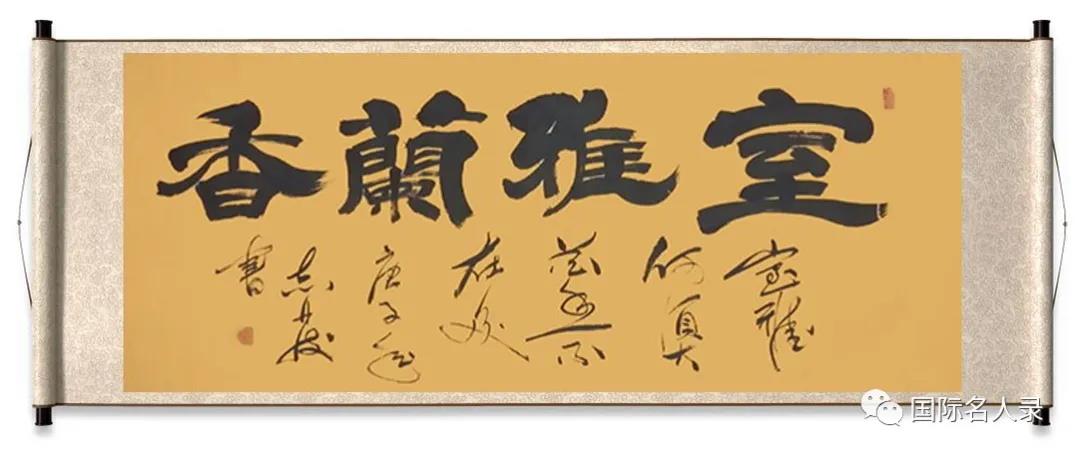 室雅蘭香
室雅
何須大
花香不
在多
庚子年
志
書
国际名人录